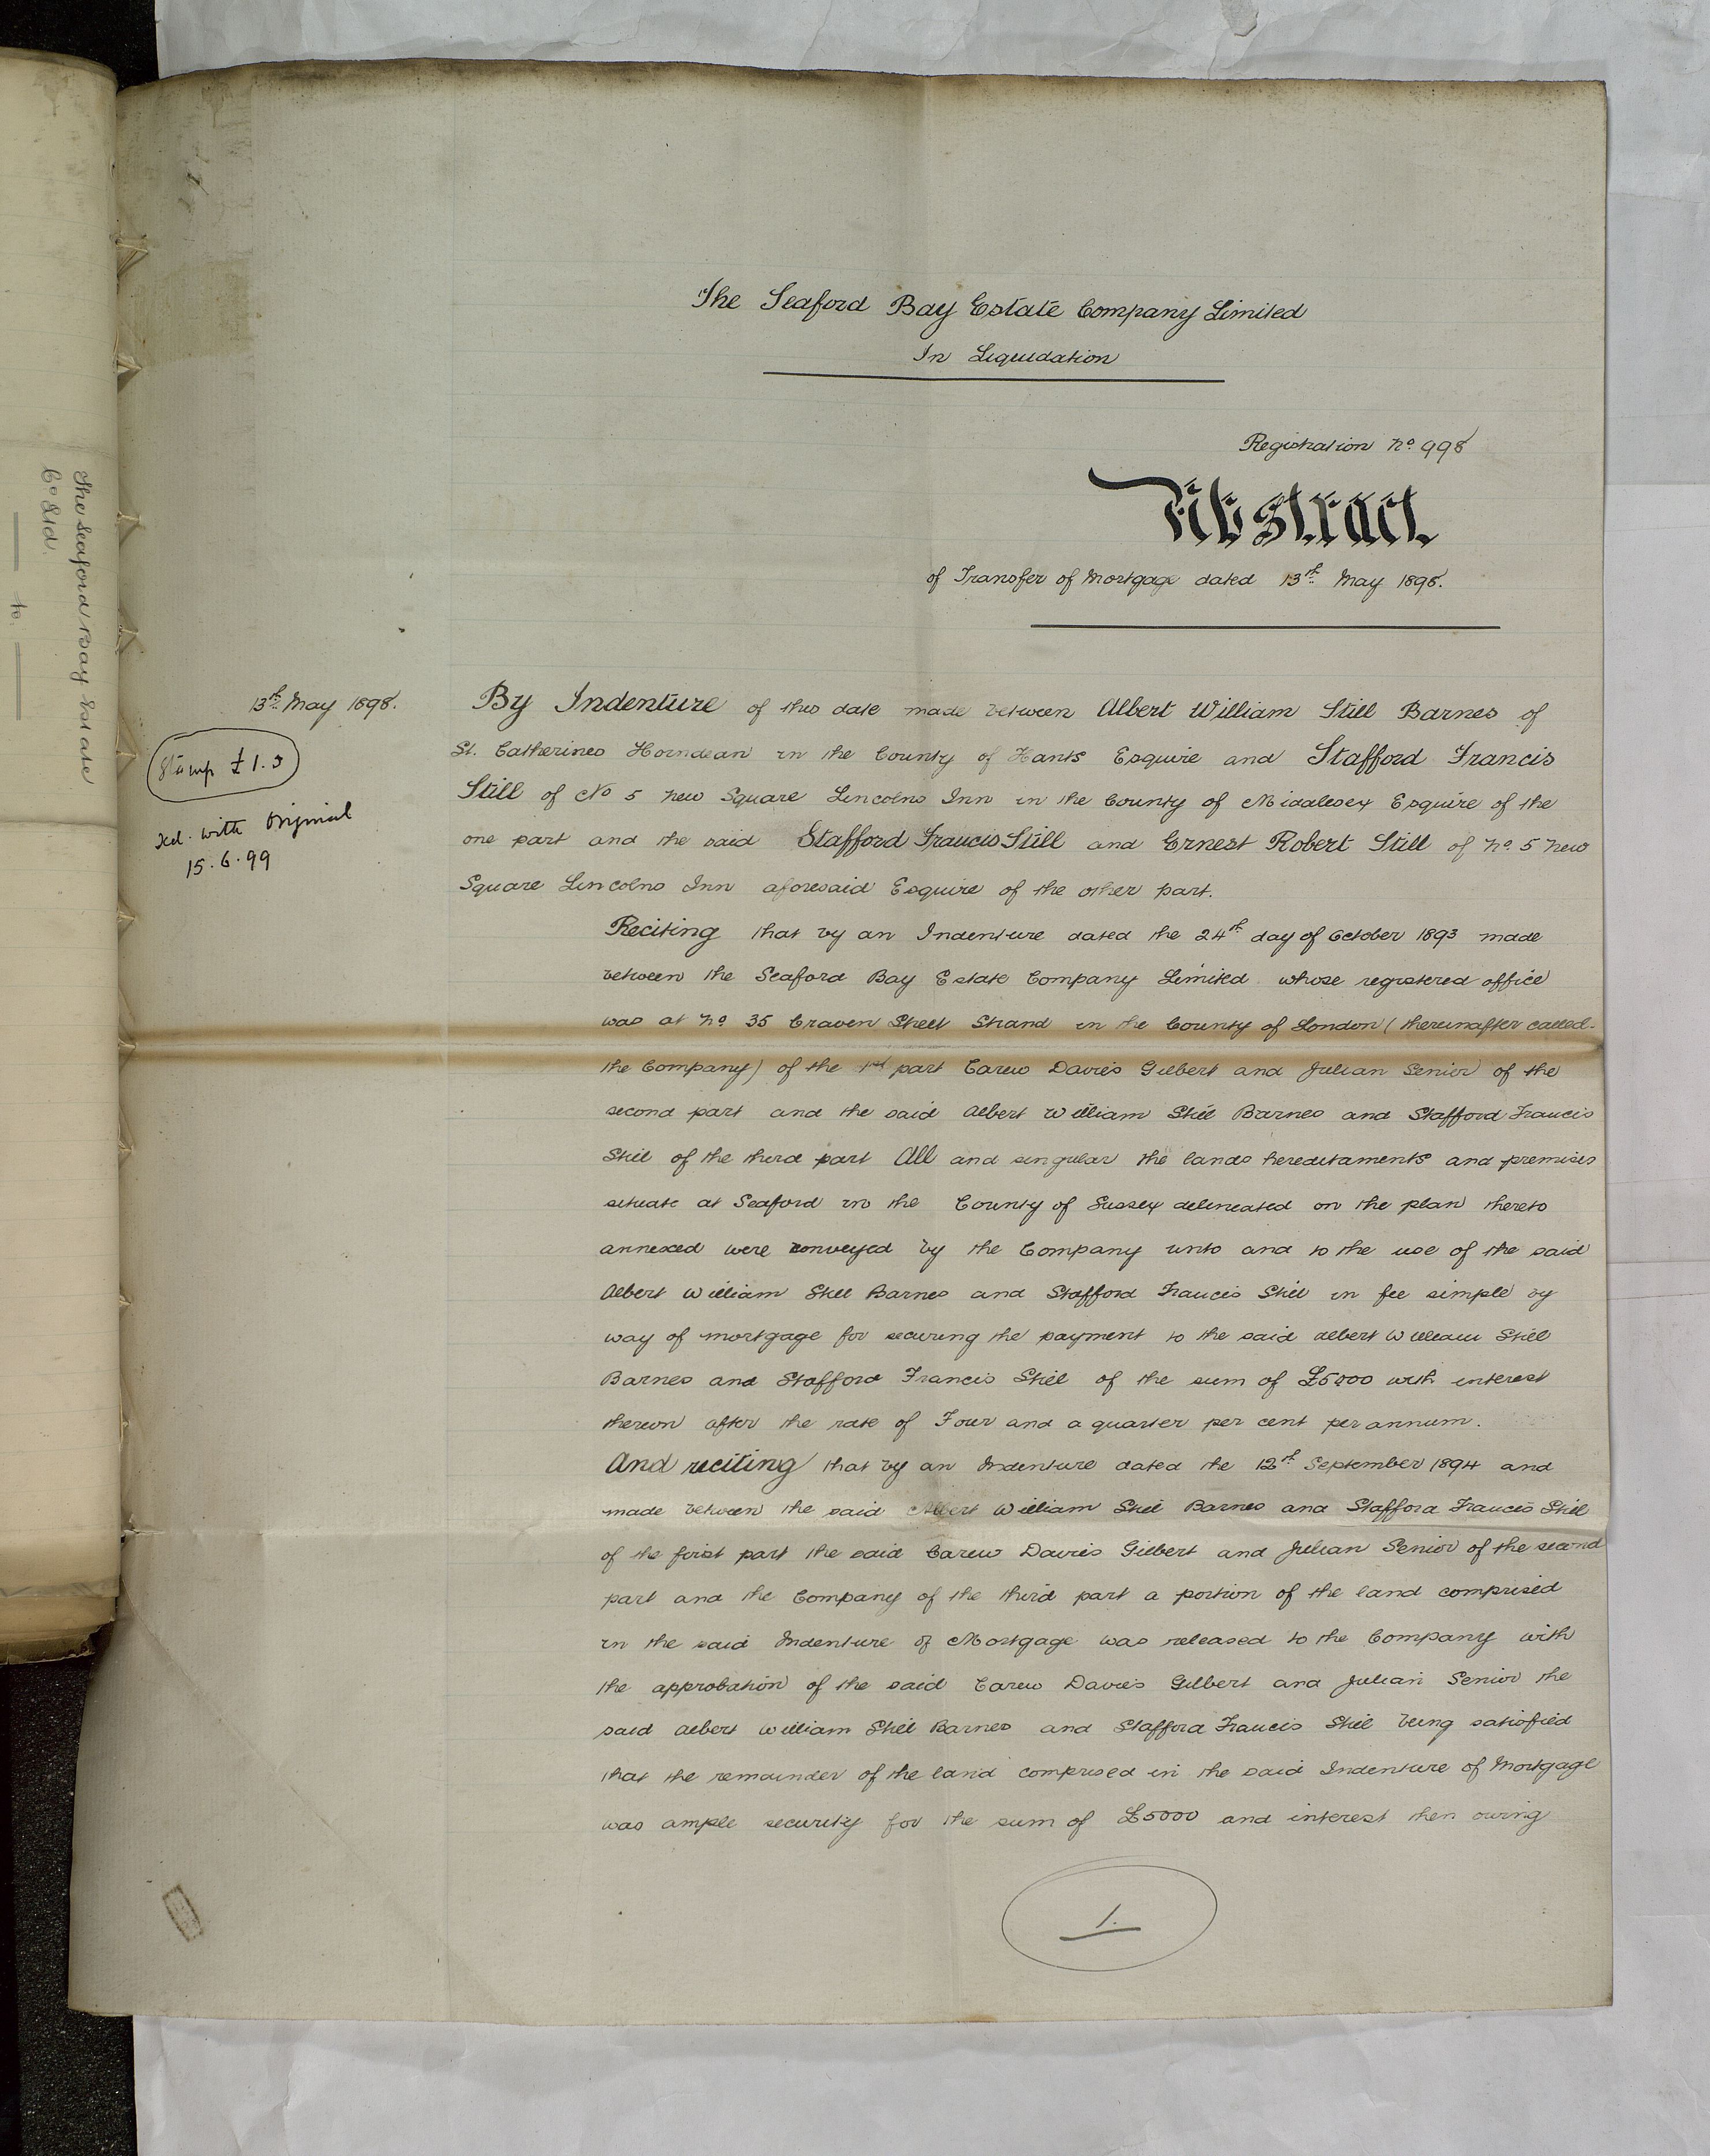 The Seaford Bay Estate Company Limited
In Liquidation
Registration No. 998
Abstract
of Transfer of Mortgage dated 13th May 1898.
13th May 1898.
Stamp £1.5
Exd. with Original
15.6.99
By Indenture of this date made between Albert William Still Barnes of
St. Catherines Horndean in the County of Hants Esquire and Stafford Francis
Still of No 5 New Square Lincolns Inn in the County of Middlesex Esquire of the
one part and the said Stafford Francis Still and Ernest Robert Still of No. 5 New
Square Lincolns Inn aforesaid Esquire of the other part.
Reciting that by an Indenture dated the 24th day of October 1893 made
between the Seaford Bay Estate Company Limited whose registered office
was at No. 35 Craven Street Strand in the County of London (thereinafter called
the Company) of the 1st part Carew Davies Gilbert and Julian Senior of the
second part and the said Albert William Still Barnes and Stafford Francis
Still of the third part All and singular the lands hereditaments and premises
situate at Seaford in the County of Sussex delineated on the plan thereto
annexed were conveyed by the Company unto and to the use of the said
Albert William Still Barnes and Stafford Francis Still in fee simple by
way of mortgage for securing the payment to the said Albert William Still
Barnes and Stafford Francis Still of the sum of £5000 with interest
thereon after the rate of Four and a quarter per cent per annum.
And reciting that by an Indenture dated the 12th September 1894 and
made between the said Albert William Still Barnes and Stafford Francis Still
of the first part the said Carew Davies Gilbert and Julian Senior of the second
part and the Company of the third part a portion of the land comprised
in the said Indenture of Mortgage was released to the Company with
the approbation of the said Carew Davies Gilbert and Julian Senior the
said Albert William Still Barnes and Stafford Francis Still being satisfied
that the remainder of the land comprised in the said Indenture of Mortgage
was ample security for the sum of £5000 and interest then owing
1.
The Seaford Bay Estate
Co Ltd.
to